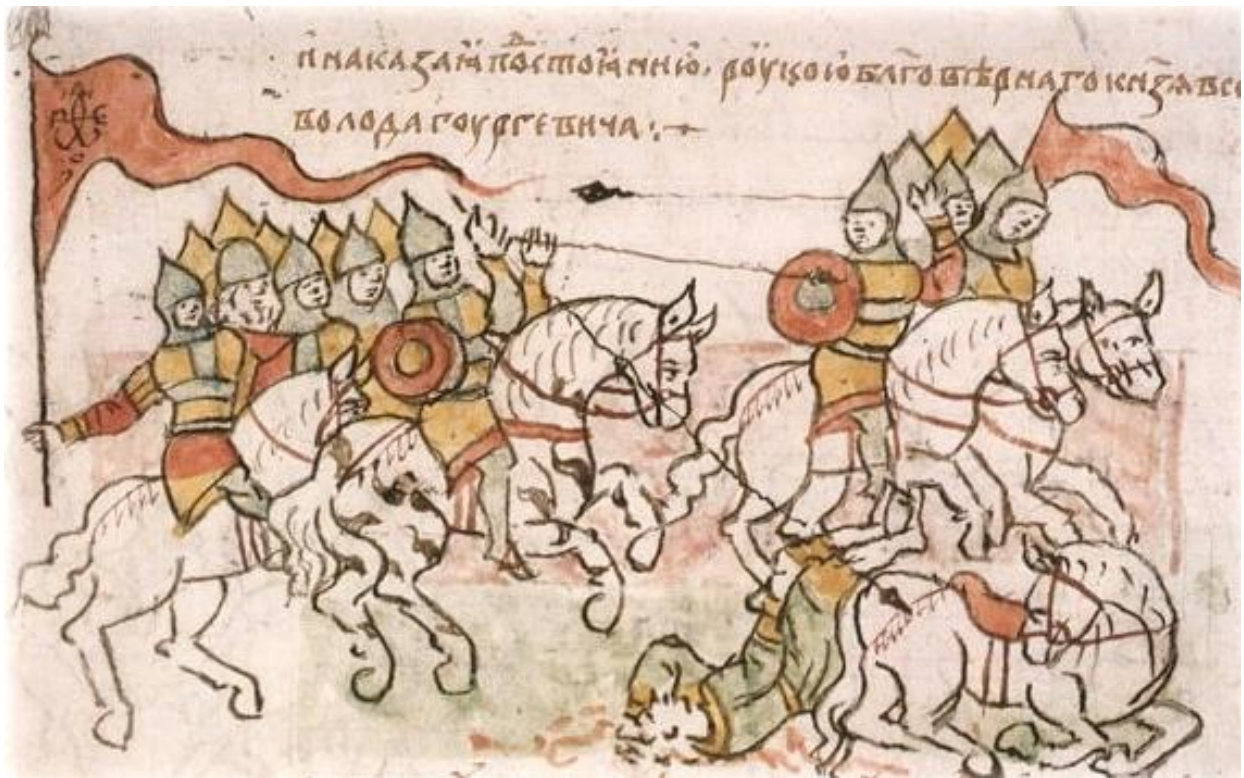 · и наказаꙗ поⷣстоꙗнию · роукою бл҃говѣрнаго кнѧ҃зѧ все
волода гоургевича :·